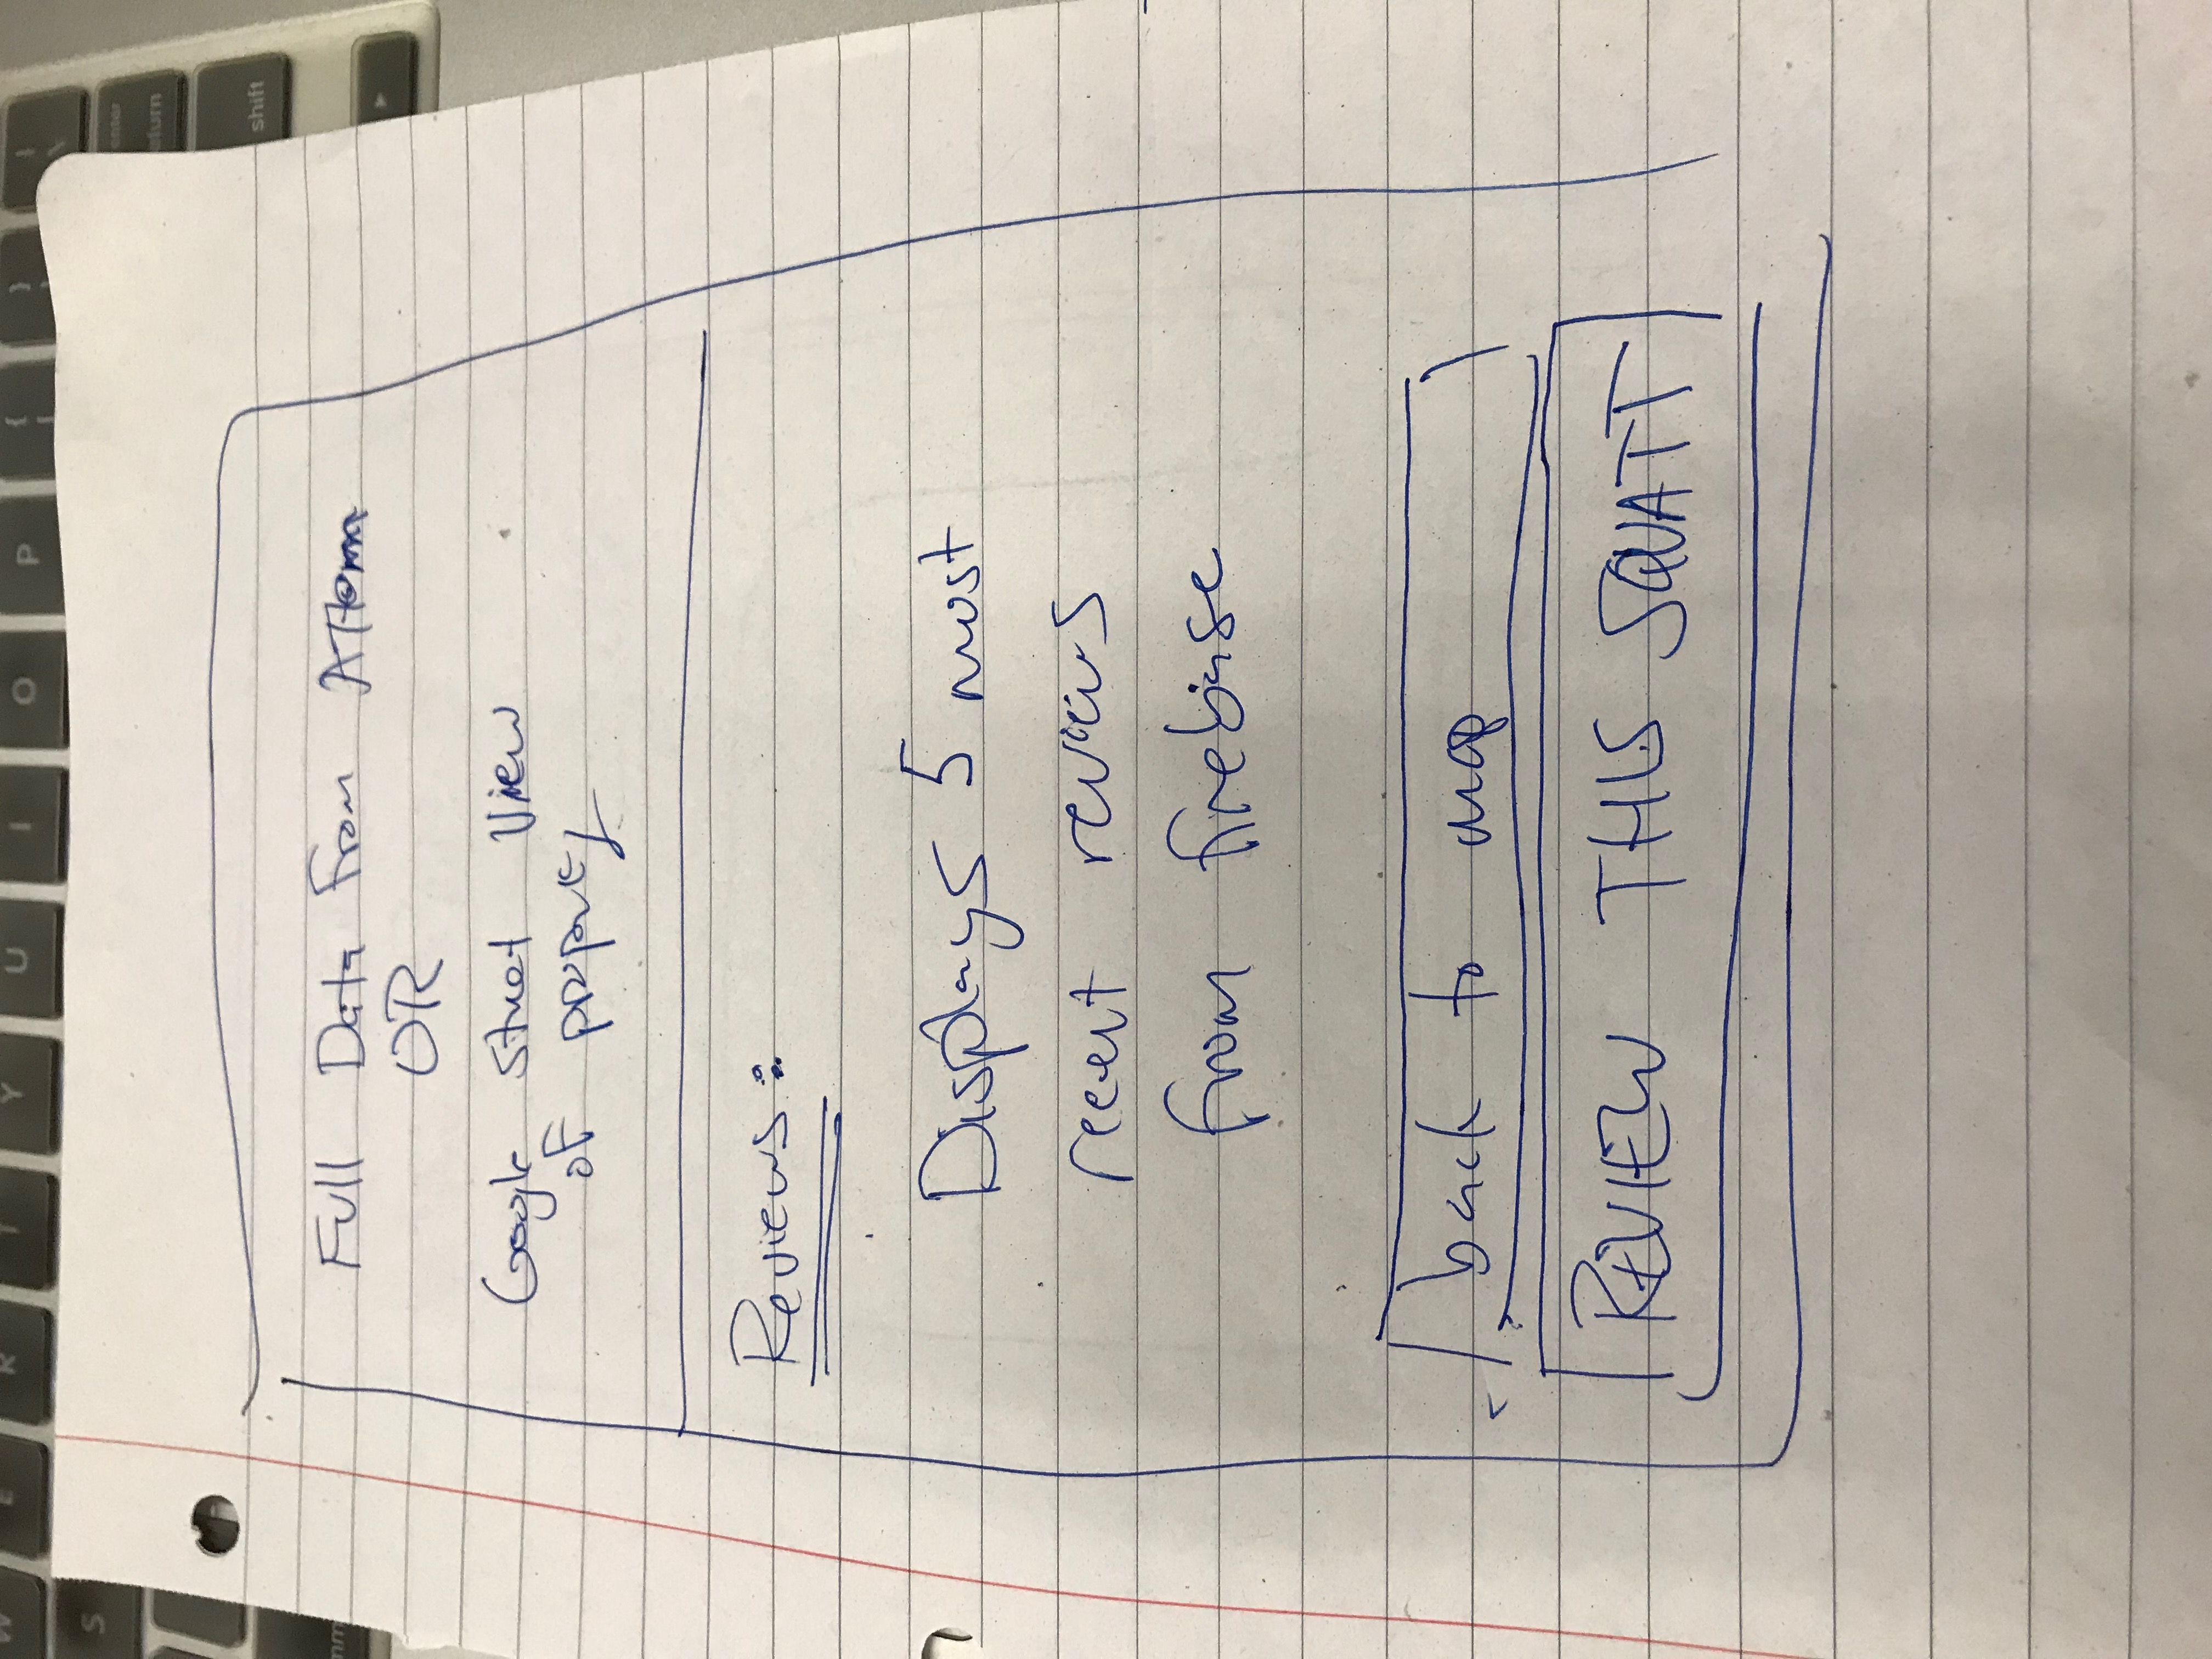 W E R T Y U I O P { }
S
enter
return
shift
Full Data From ATTOM
OR
Google Street View
of property
Reviews:
Displays 5 most
recent reviews
from firebase
back to map
REVIEW THIS SQUATT